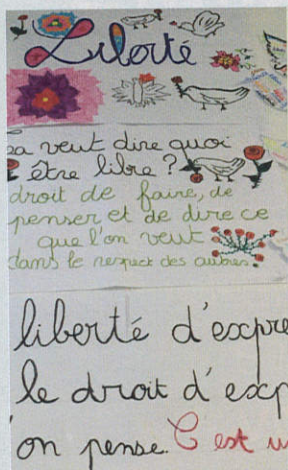 Liberté
ça veut dire quoi
être libre ?
droit de faire, de
penser et de dire ce
que l'on veut
dans le respect des autres.
liberté d'expre
le droit d'exp
'on pense. C'est u